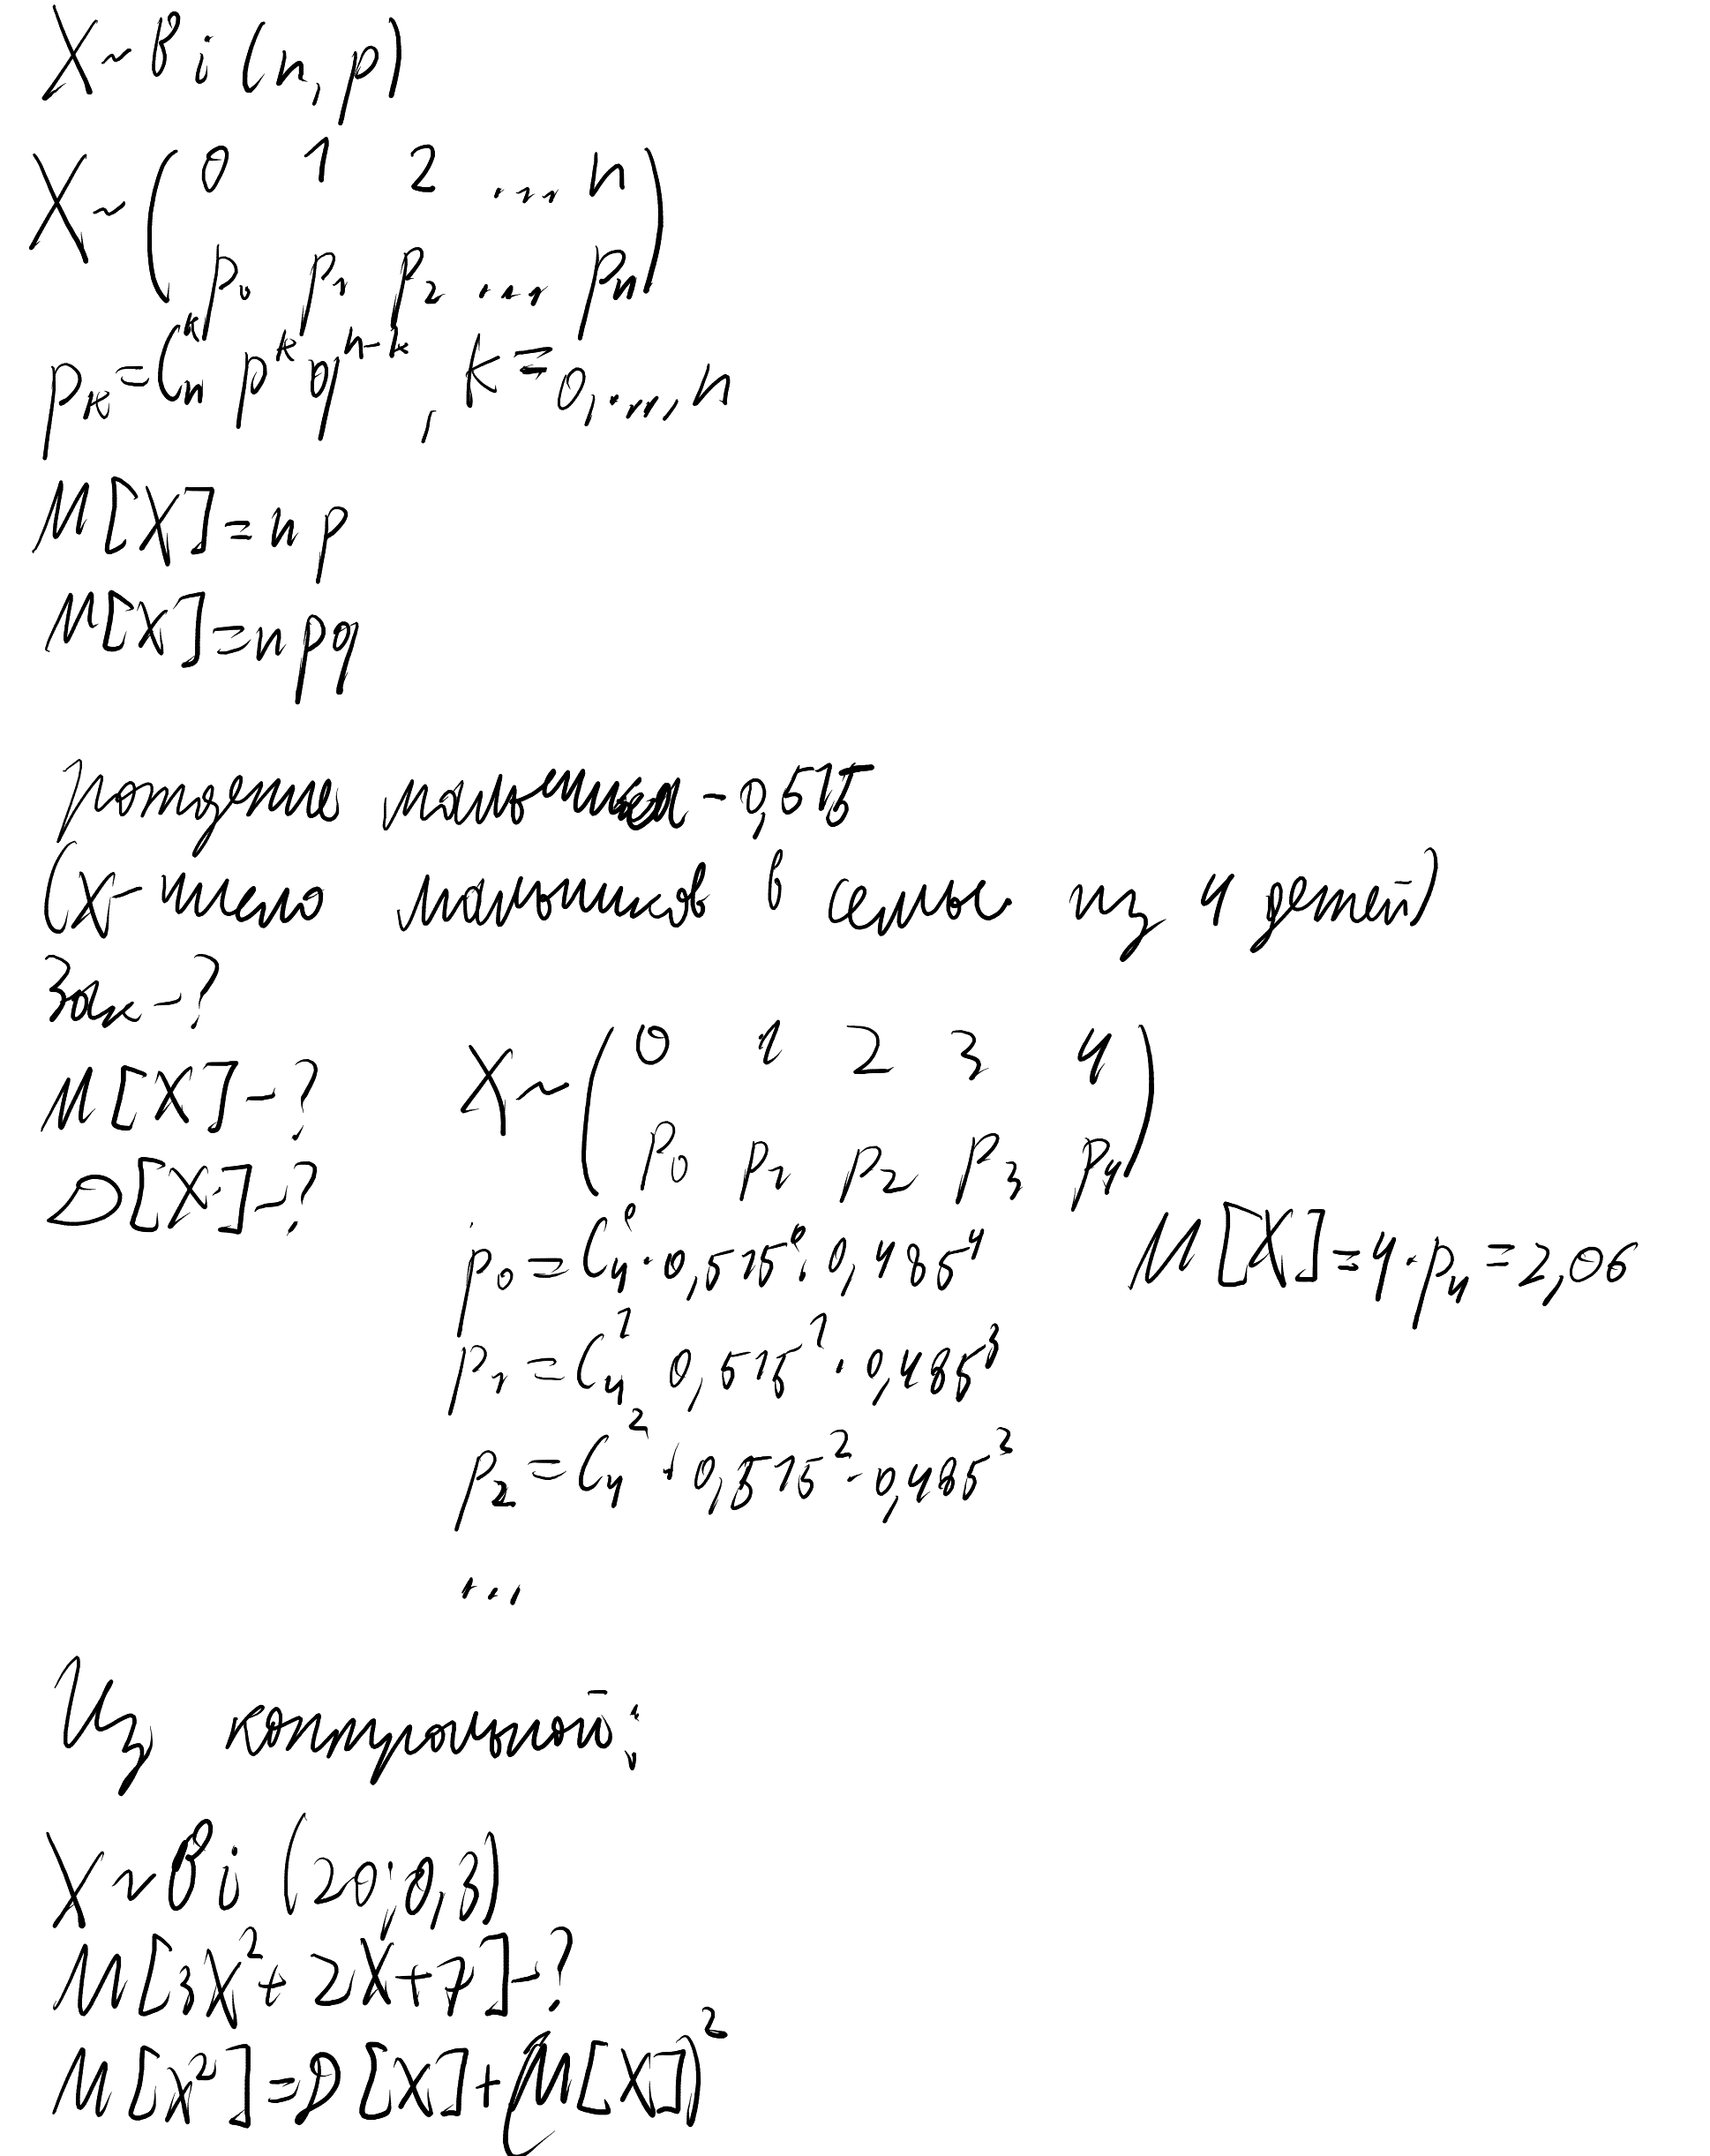 X~Bi(n,p)
X~(0 1 2 ... n
p₀ p₁ p₂ ... pₙ)
pₖ=Cₙᵏ pᵏ qⁿ⁻ᵏ, k=0,...,n
M[X]=np
M[X]=npq
рождение мальчика-0,515
(X-число мальчиков в семье из 4 детей)
Зак-?
M[X]-?
D[X]-?
X~(0 1 2 3 4
p₀ p₁ p₂ p₃ p₄)
p₀=C₄⁰·0,515⁰·0,485⁴
M[X]=4·p₄=2,06
p₁=C₄¹ 0,515¹·0,485³
p₂=C₄²·0,515²·0,485²
...
Из контрольной:
X~Bi(20;0,3)
M[3X²+2X+7]-?
M[X²]=D[X]+(M[X])²